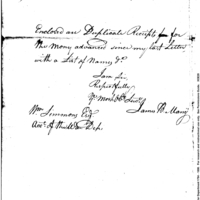 Enclosed are Duplicate Receipts for
the Mony advanced since my last Letter
with a List of Names &c
I am Sir
Respectfully
Yr Most Obt Servt
Wm Simmons Esqr
Acct of the War Dep